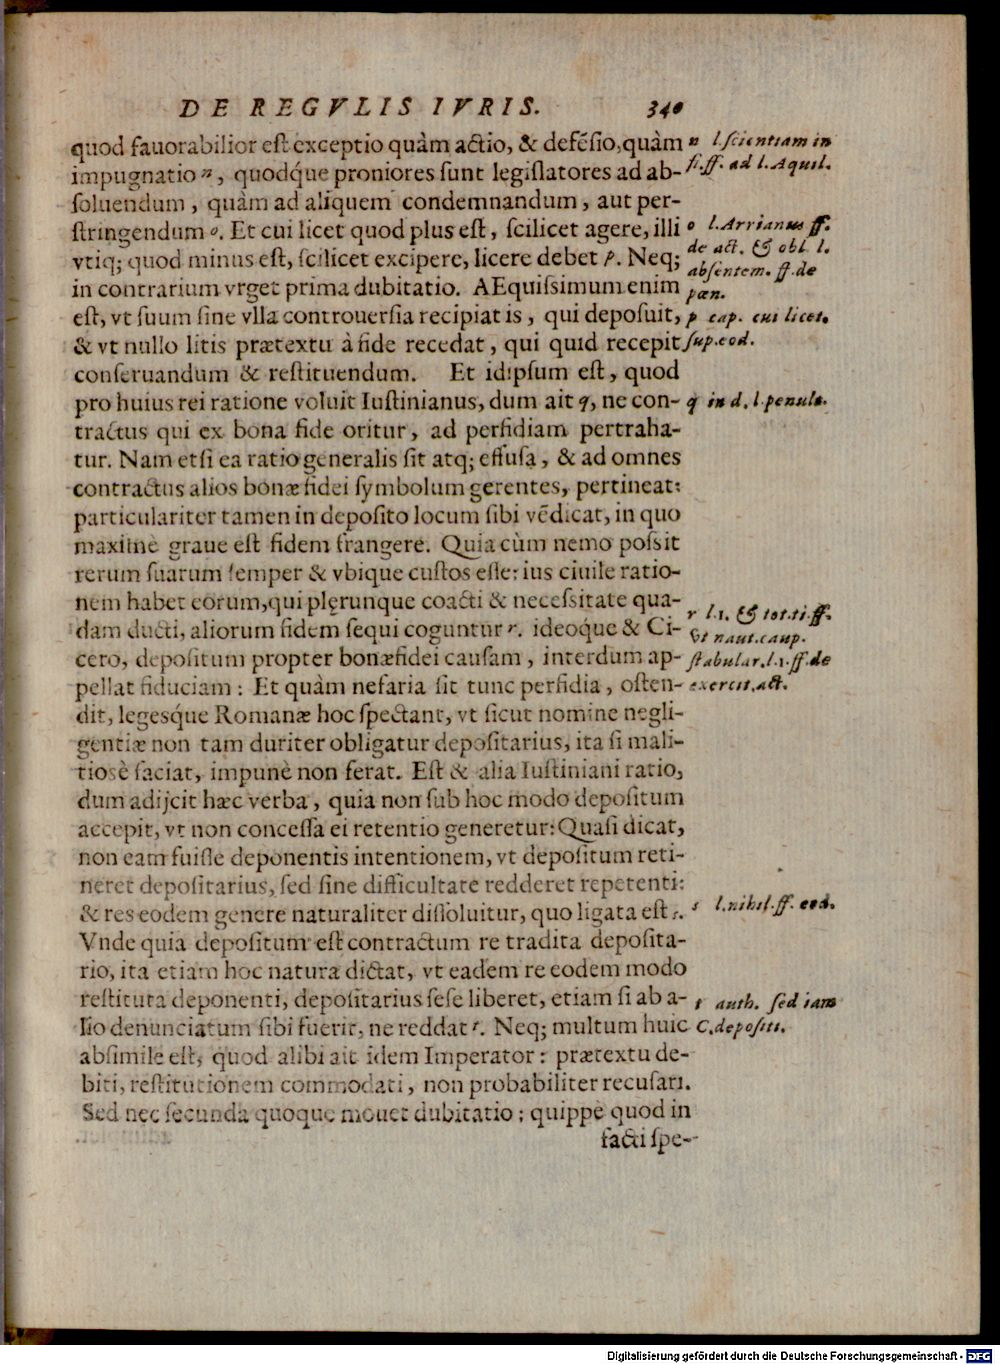 DE REGVLIS IVRIS. 340
quod fauorabilior est exceptio quàm actio, & defẽsio, quàm
impugnatio n, quodq́ue proniores sunt legislatores ad ab-
soluendum, quàm ad aliquem condemnandum, aut per-
stringendum o. Et cui licet quod plus est, scilicet agere, illi
vtiq; quod minus est, scilicet excipere, licere debet p. Neq;
in contrarium vrget prima dubitatio. AEquissimum enim
est, vt suum sine vlla controuersia recipiat is, qui deposuit,
& vt nullo litis prætextu à fide recedat, qui quid recepit
conseruandum & restituendum. Et idipsum est, quod
pro huius rei ratione voluit Iustinianus, dum ait q, ne con-
tractus qui ex bona fide oritur, ad perfidiam pertraha-
tur. Nam etsi ea ratio generalis sit atq; effusa, & ad omnes
contractus alios bonæ fidei symbolum gerentes, pertineat:
particulariter tamen in deposito locum sibi vẽdicat, in quo
maximè graue est fidem frangere. Quia cùm nemo possit
rerum suarum semper & vbique custos esse: ius ciuile ratio-
nem habet eorum, qui plęrunque coacti & necessitate qua-
dam ducti, aliorum fidem sequi coguntur r. ideoque & Ci-
cero, depositum propter bonæfidei causam, interdum ap-
pellat fiduciam: Et quàm nefaria sit tunc perfidia, osten-
dit, legesq́ue Romanæ hoc spectant, vt sicut nomine negli-
gentiæ non tam duriter obligatur depositarius, ita si mali-
tiosè faciat, impunè non ferat. Est & alia Iustiniani ratio,
dum adijcit hæc verba, quia non sub hoc modo depositum
accepit, vt non concessa ei retentio generetur: Quasi dicat,
non eam fuisse deponentis intentionem, vt depositum reti-
neret depositarius, sed sine difficultate redderet repetenti:
& res eodem genere naturaliter dissoluitur, quo ligata est s.
Vnde quia depositum est contractum re tradita deposita-
rio, ita etiam hoc natura dictat, vt eadem re eodem modo
restituta deponenti, depositarius sese liberet, etiam si ab a-
lio denunciatum sibi fuerit, ne reddat t. Neq; multum huic
absimile est, quod alibi ait idem Imperator: prætextu de-
biti, restitutionem commodati, non probabiliter recusari.
Sed nec secunda quoque mouet dubitatio; quippè quod in
facti spe-
n l. scientiam in
fi. ff. ad l. Aquil.
o l. Arrianus ff.
de act. & obl. l.
absentem. ff. de
pœn.
p cap. cui licet.
sup. eod.
q in d. l. penult.
r l. 1. & tot. ti. ff.
vt naut. caup.
stabular. l. 1. ff. de
exercit. act.
s l. nihil. ff. eod.
t auth. sed iam
C. depositi.
Digitalisierung gefördert durch die Deutsche Forschungsgemeinschaft - DFG